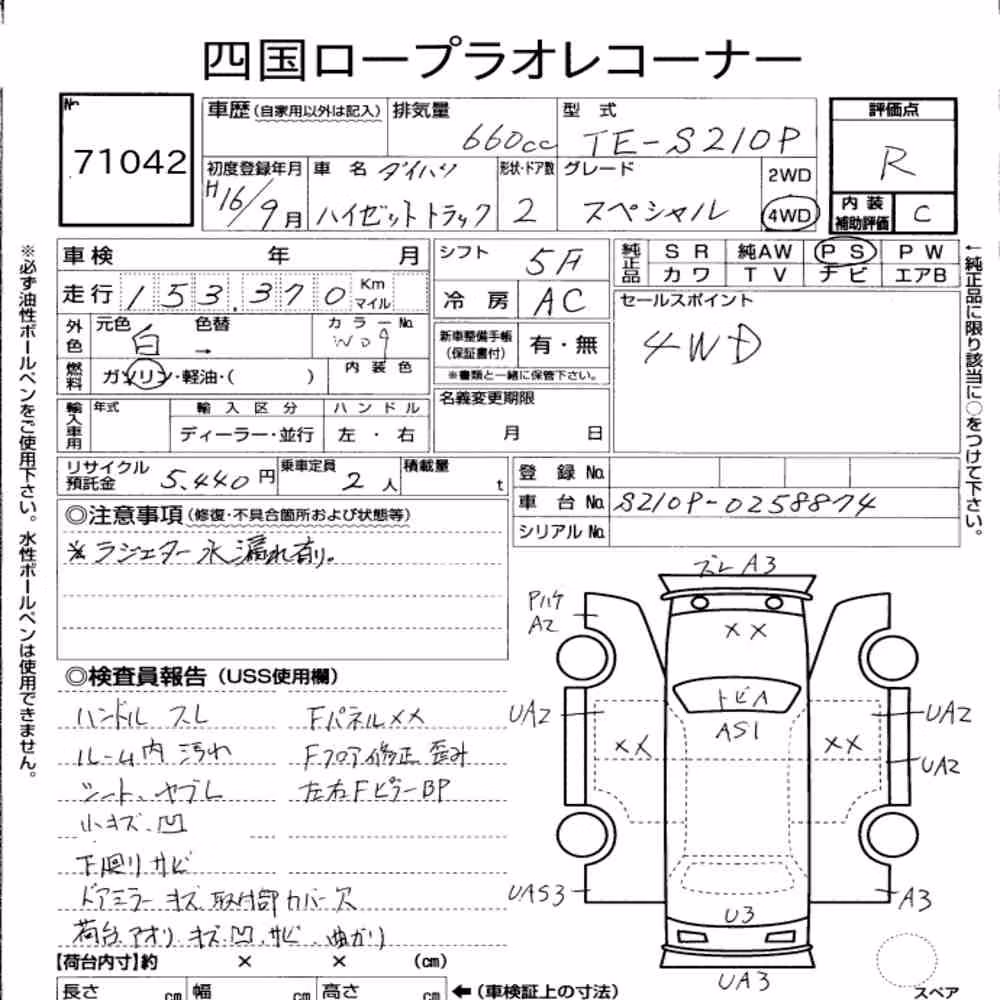 四国ロープラオレコーナー
No.
71042
車歴(自家用以外は記入)
排気量
660cc
型 式
TE-S210P
評価点
R
内装
補助評価
C
初度登録年月
H16/9月
車 名 ダイハツ
ハイゼットトラック
形状・ドア数
2
グレード
スペシャル
2WD
4WD
車検 年 月
走行 153,370 Km
マイル
シフト 5F
冷 房 AC
純正品
SR 純AW PS PW
カワ TV ナビ エアB
外色
元色 白 色替 →
カラーNo.
W09
燃料
ガソリン・軽油・( )
内装色
新車整備手帳
(保証書付)
有・無
※書類と一緒に保管下さい。
セールスポイント
4WD
輸入車用
年式
輸入区分
ディーラー・並行
ハンドル
左・右
名義変更期限
月 日
リサイクル
預託金
5,440円
乗車定員
2人
積載量
t
登 録 No.
車 台 No. S210P-0258874
シリアル No.
※必ず油性ボールペンをご使用下さい。水性ボールペンは使用できません。
←純正品に限り該当に○をつけて下さい。
◎注意事項(修復・不具合箇所および状態等)
※ラジエター水漏れ有り。
◎検査員報告(USS使用欄)
ハンドル スレ
ルーム内 汚れ
シート、ヤブレ
小キズ.凹
下廻りサビ
ドアミラーキズ 取付部カバー欠
荷台.アオリ.キズ.凹.サビ.曲がり
FパネルXX
Fフロア修正 歪み
左右FピラーBP
ズレA3
Pハゲ
A2
XX
トビA
AS1
UA2
XX
XX
UA2
UA2
UAS3
A3
U3
UA3
スペア
【荷台内寸】約 × × (cm)
長さ cm 幅 cm 高さ cm ←(車検証上の寸法)